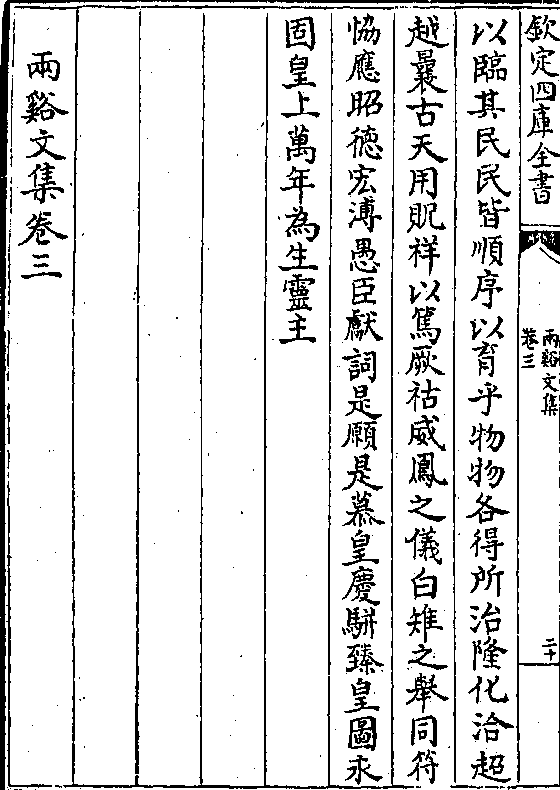 欽定四庫全書
兩谿文集
卷三
二十
以臨其民民皆順序以育乎物物各得所治隆化洽超
越曩古天用貺祥以篤厥祜威鳳之儀白雉之舉同符
恊應昭德宏溥愚臣獻詞是願是慕皇慶駢臻皇圖永
固皇上萬年為生靈主
兩谿文集卷三